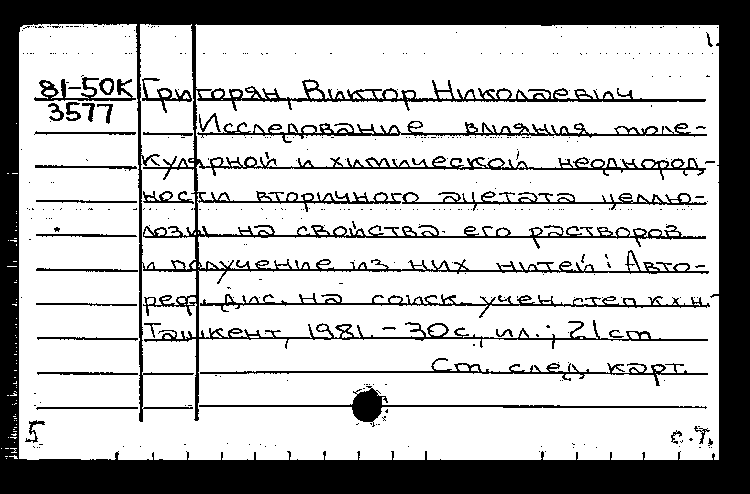 1.
81-50К Григорян, Виктор Николаевич
3577
Исследование влияния моле-
кулярной и химической неоднород-
ности вторичного ацетата целлю-
лозы на свойства его растворов
и получение из них нитей: Авто-
реф. дис. на соиск. учен. степ. к.х.н.-
Ташкент, 1981. - 30 с., ил.; 21 cm.
См. след. карт.
5
с.т.